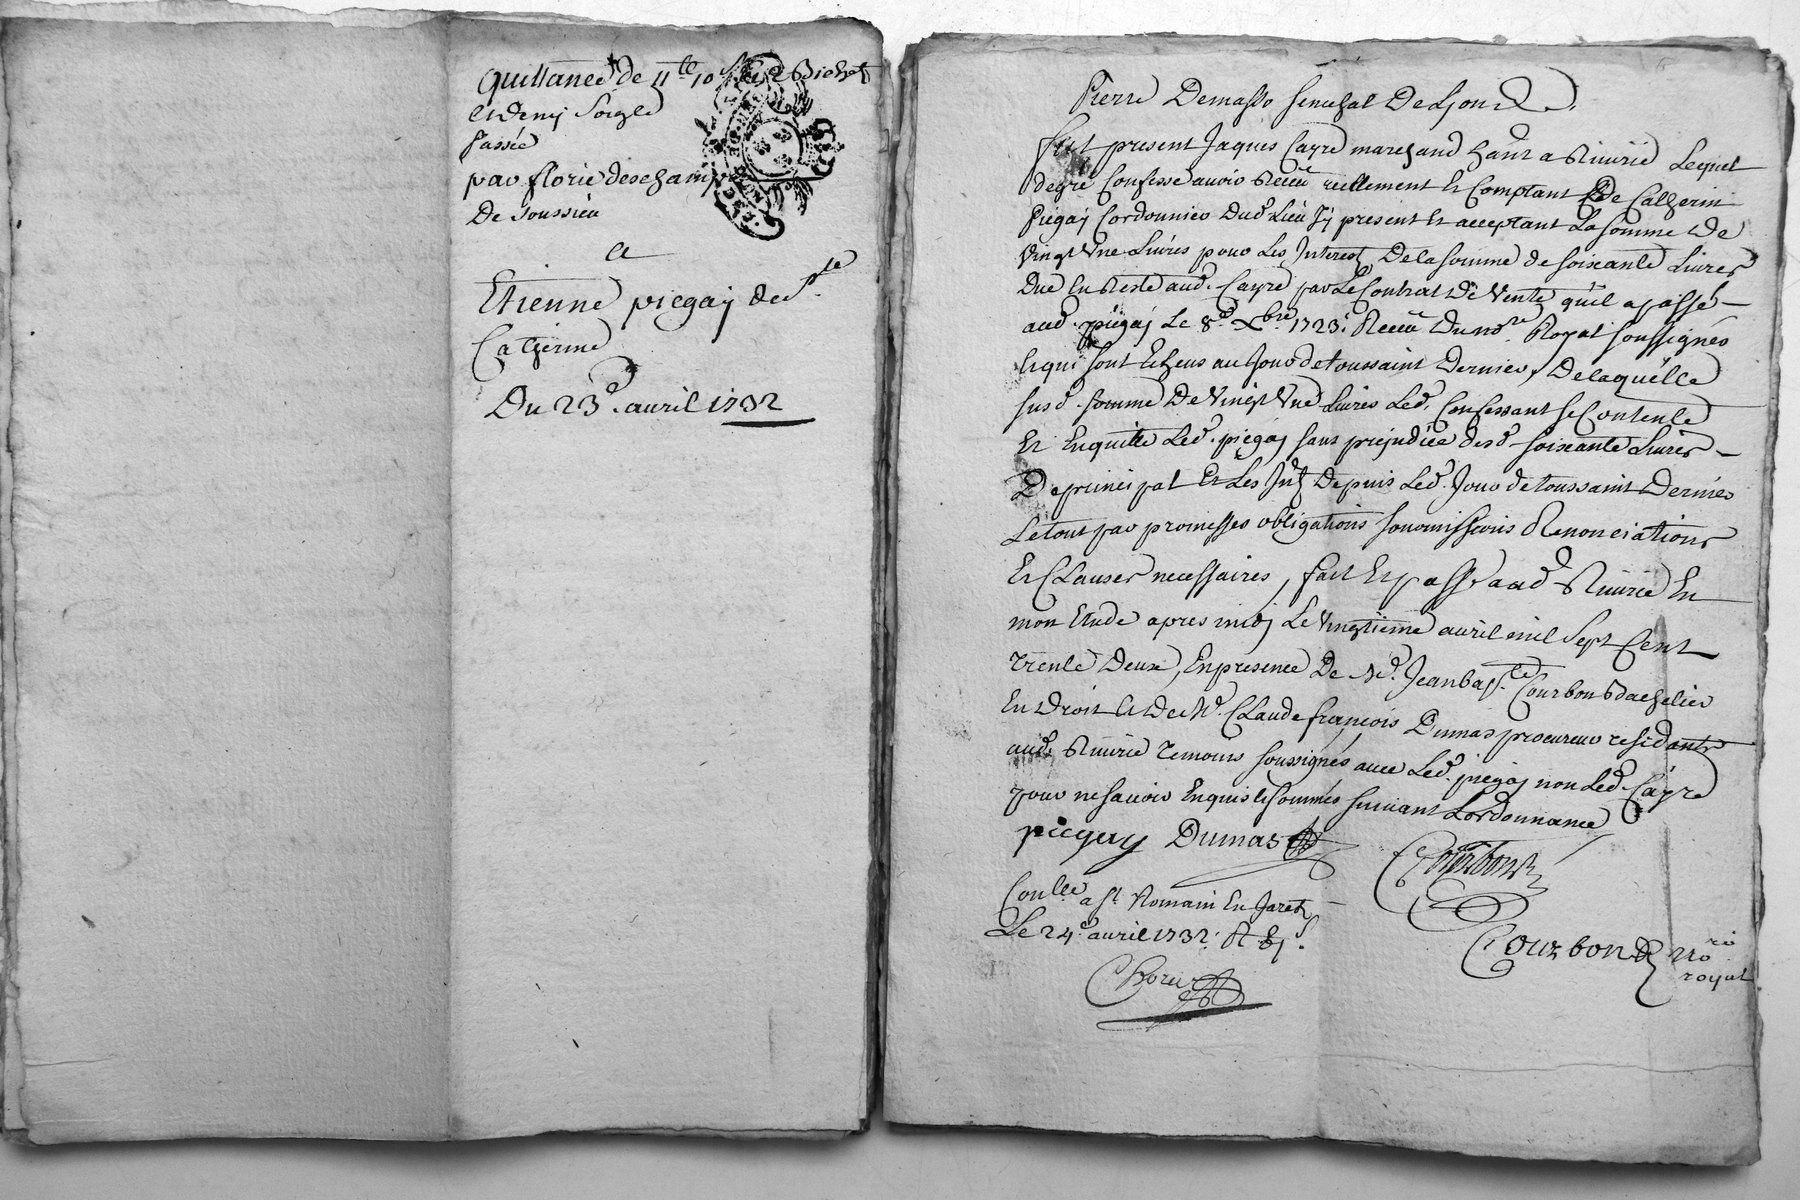 Quittance de 11ᵗᵗ 10ˢ et 2 Bichets
et demy Soigle
Passée
par florie deschamp
De Soussieu
a
Etienne piegaÿ de Sᵗᵉ
Catherine
Du 23ᵉ. auril 1732
Pierre Demasso senechal De Lyon &.
fut present Jaques Cayre marchand hanᵗ a Riuirie Lequel
degré Confesse auoir Receu reellement et Comptant De Catherin
Piegaÿ Cordonnier Dudᵗ. Lieu Jÿ present et acceptant La somme De
Vingt Vne Liures pour Les Interest De la somme de soixante Liures
Due En Reste audᵗ. Cayre par Le Contrat De Vente qu'il a passé
audᵗ. piegaÿ Le 8ᵉ. Xbre 1723. Receu Du noʳᵉ Royal soussignés
Et qui sont Echeus au Jour de toussaint Dernier, De laquëlle
susdᵗ. somme De Vingt Vne Liures Ledᵗ. Confessant se Contente
Et En quitte Ledᵗ. piegaÿ sans prejudice desdᵗ soixante Liures
De principal Et Les Intᵗ Depuis Ledᵗ. Jour de toussaint Dernier
Le tout par promesses obligations soumissions Renonciations
Et Clauses necessaires, fait Et passé audᵗ Riuirie En
mon Etude apres midÿ Le Vingtieme auril mil Sept Cent
trente Deux, En presence De Mᵉ. Jean bapᵗᵉ Courbon Bachelier
En Droit et De Mᵉ. Claude françois Dumas procureur residants
audᵗ. Riuirie temoins soussignés auec Ledᵗ. piegaÿ non Ledᵗ Cayre
pour ne sauoir Enquis et sommés suiuant Lordonnance
piegay Dumas
Courbon
Conˡˡᵉ a Sᵗ Romain En Jarest
Le 24ᵉ. auril 1732. R
Courbon noʳᵉ
royal